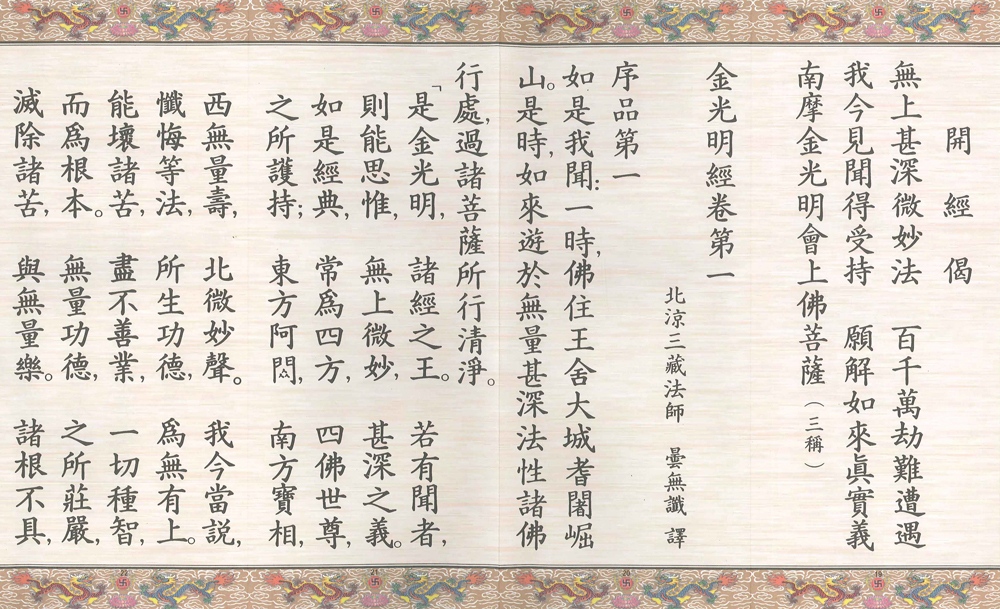 開經偈
無上甚深微妙法　百千萬劫難遭遇
我今見聞得受持　願解如來眞實義
南摩金光明會上佛菩薩（三稱）
金光明經卷第一
北涼三藏法師　曇無讖　譯
序品第一
如是我聞：一時，佛住王舍大城耆闍崛
山。是時，如來遊於無量甚深法性諸佛
行處，過諸菩薩所行清淨。
「是金光明，諸經之王。若有聞者，
則能思惟，無上微妙，甚深之義。
如是經典，常爲四方，四佛世尊，
之所護持；東方阿閦，南方寶相，
西無量壽，北微妙聲。我今當説，
懺悔等法，所生功德，爲無有上。
能壞諸苦，盡不善業，一切種智，
而爲根本。無量功德，之所莊嚴，
滅除諸苦，與無量樂。諸根不具，